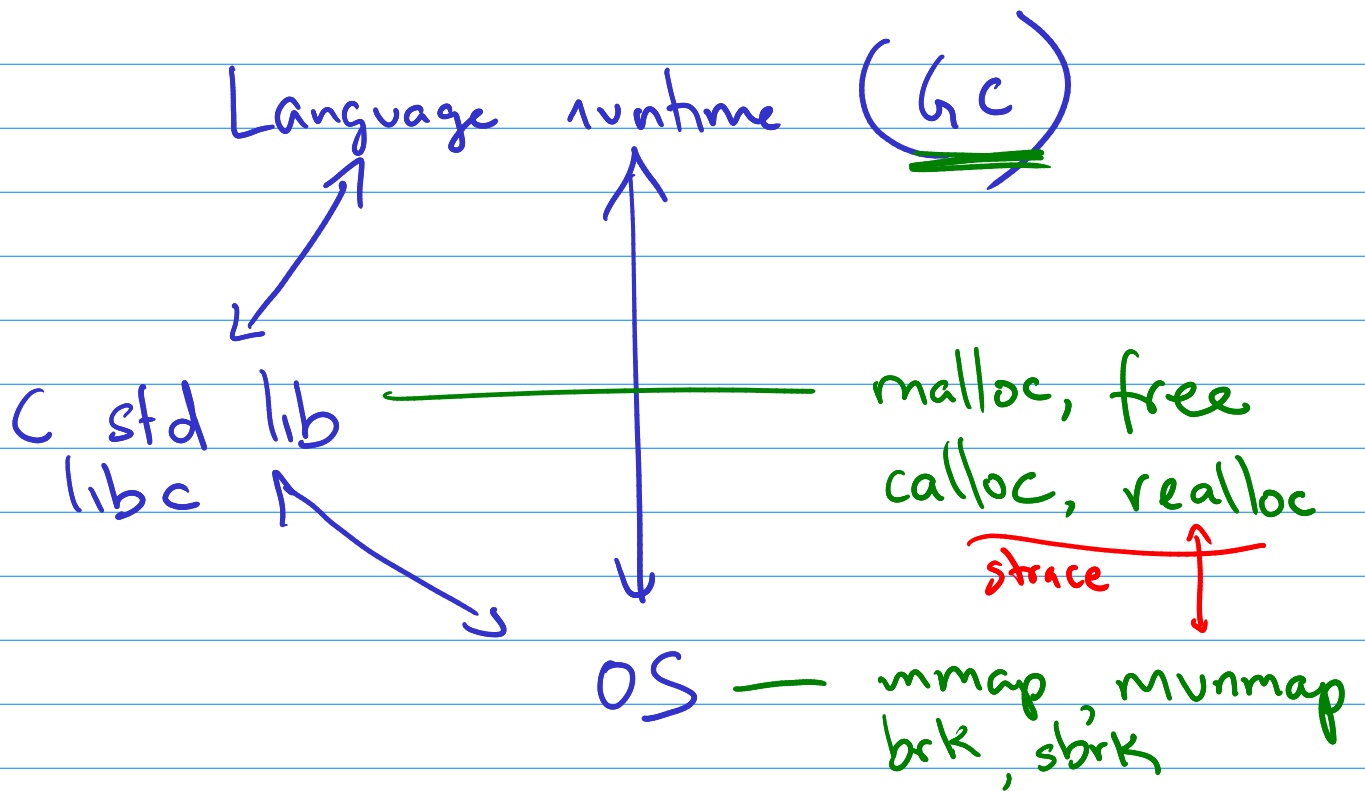 Language runtime (GC)
C std lib
libc
malloc, free
calloc, realloc
strace
OS — mmap, munmap
brk, sbrk